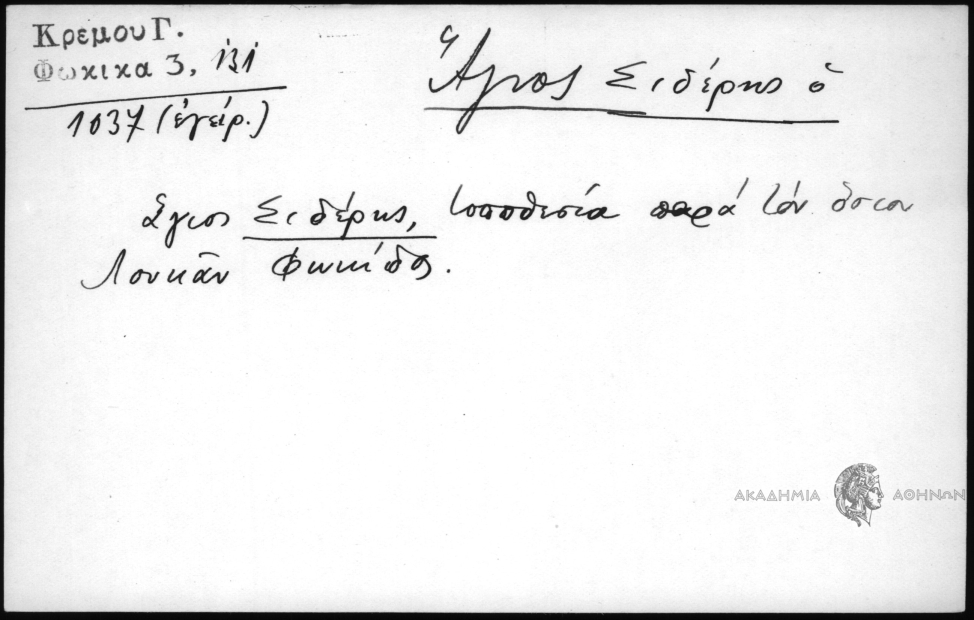 Κρεμου Γ.
Φωκικα 3, 131
1037 (ἐγείρ.)
Ἅγιος Σιδέρης ὁ
Ἅγιος Σιδέρης, τοποθεσία παρά τόν ὅσιον
Λουκᾶν Φωκίδος.
ΑΚΑΔΗΜΙΑ ΑΘΗΝΩΝ